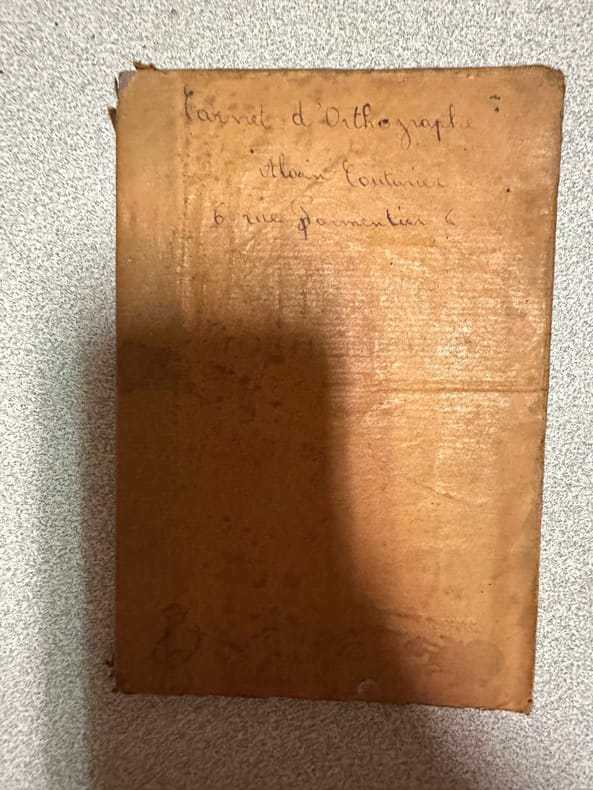 Carnet d'Orthographe
Alain Couturier
6 rue Parmentier 6